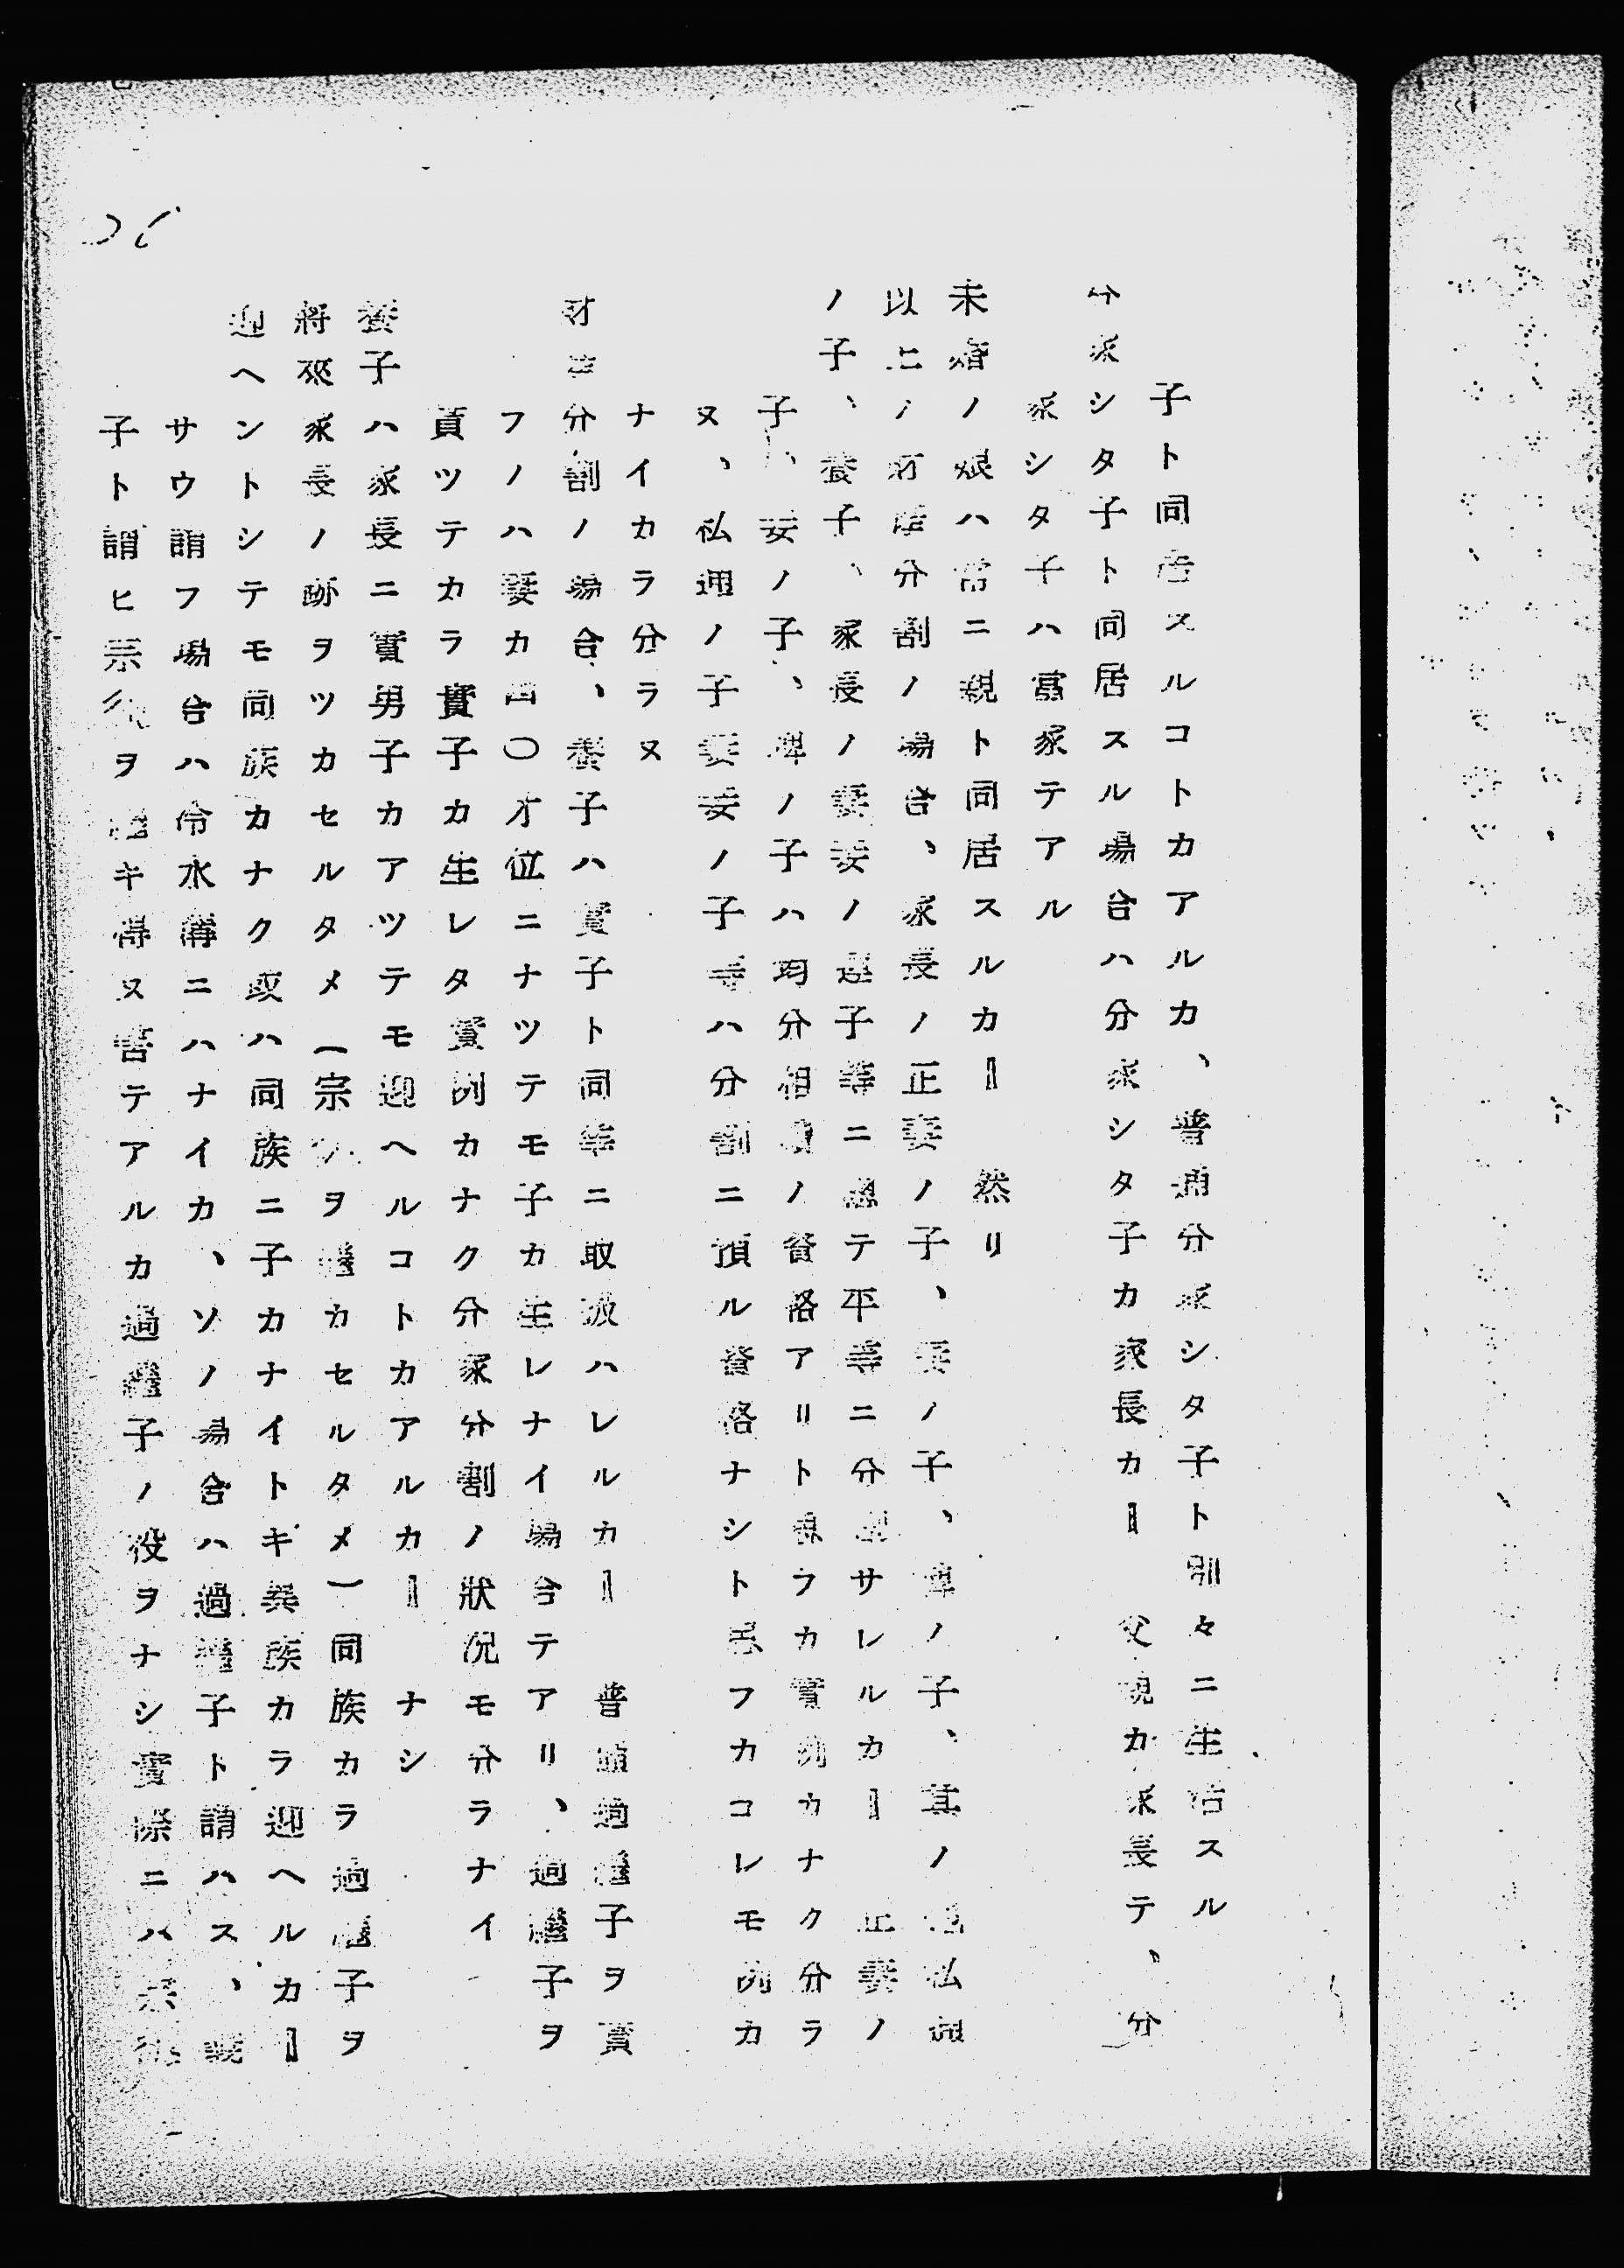 子ト同居スルコトカアルカ、普通分家シタ子ト別々ニ生活スル
分家シタ子ト同居スル場合ハ分家シタ子カ家長カ―‖ 父親カ家長テ、分
家シタ子ハ當家テアル
未婚ノ娘ハ常ニ親ト同居スルカ―‖ 然リ
以上ノ財產分割ノ場合、家長ノ正妻ノ子、妾ノ子、婢ノ子、其ノ他私通
ノ子、養子、家長ノ妻妾ノ連子等ニ總テ平等ニ分割サレルカ―‖ 正妻ノ
子、妾ノ子、婢ノ子ハ均分相續ノ資格アリト思フカ實例カナク分ラ
ヌ、私通ノ子妻妾ノ子等ハ分割ニ預ル資格ナシト思フカコレモ例カ
ナイカラ分ラヌ
財產分割ノ場合、養子ハ實子ト同等ニ取扱ハレルカ―‖ 普通過繼子ヲ貰
フノハ妻カ四〇才位ニナツテモ子カ生レナイ場合テアリ、過繼子ヲ
貰ツテカラ實子カ生レタ實例カナク分家分割ノ狀況モ分ラナイ
養子ハ家長ニ實男子カアツテモ迎ヘルコトカアルカ―‖ ナシ
將來家長ノ跡ヲツカセルタメ(宗ヲ繼カセルタメ)同族カラ過繼子ヲ
迎ヘントシテモ同族カナク或ハ同族ニ子カナイトキ異族カラ迎ヘルカ―‖
サウ謂フ場合ハ冷水溝ニハナイカ、ソノ場合ハ過繼子ト謂ハス、義
子ト謂ヒ宗祧ヲ繼キ得ヌ害テアルカ過繼子ノ役ヲナシ實際ニハ宗祧